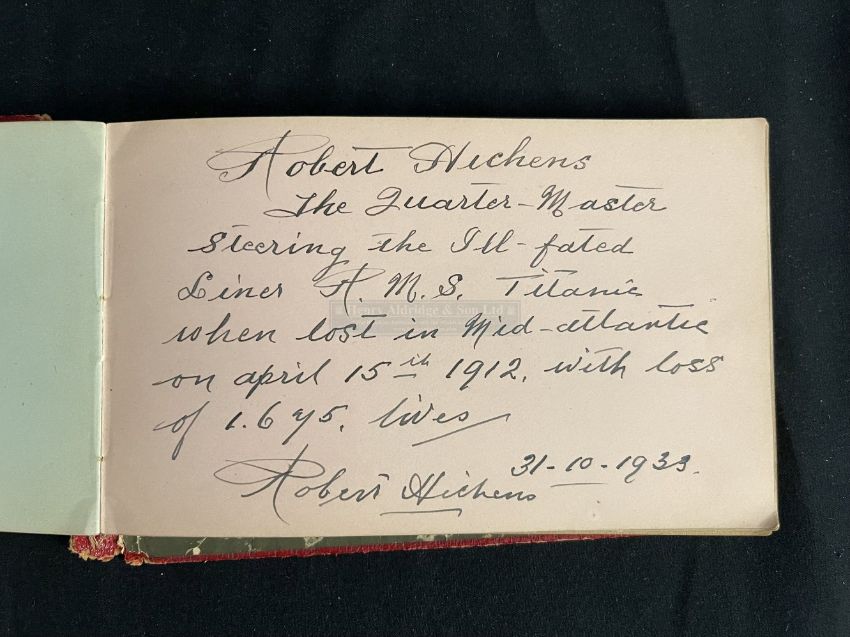 Robert Hichens
The Quarter-Master
steering the Ill-fated
Liner R. M. S. Titanic
Henry Aldridge & Son Ltd
when lost in Mid-atlantic
on april 15th 1912, with loss
of 1.675. lives
31-10-1933.
Robert Hichens